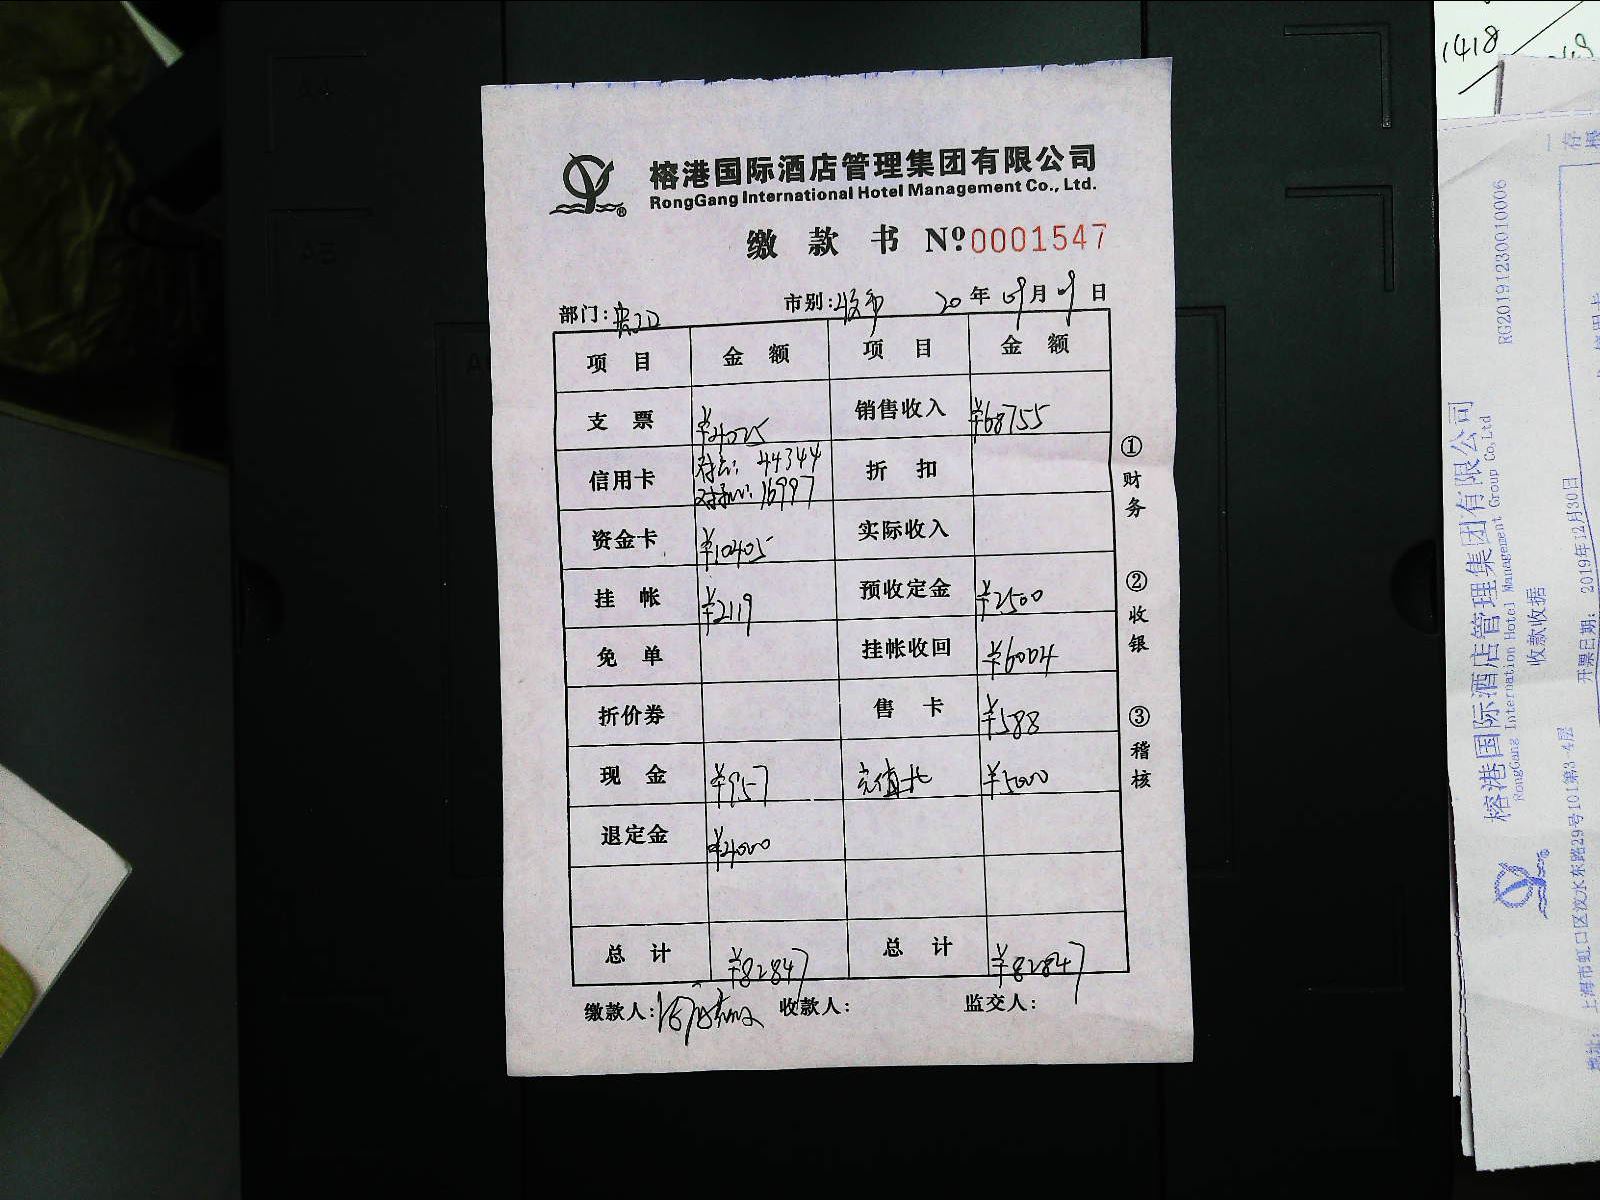 榕港国际酒店管理集团有限公司
RongGang International Hotel Management Co., Ltd.
缴款书 Nº 0001547
部门: 市别: 20年09月09日
项目 金额 项目 金额
支票 ¥4025 销售收入 ¥68755
信用卡 对公: 44344 折扣
对私: 16997
资金卡 ¥10405 实际收入
挂帐 ¥2119 预收定金 ¥2500
免单 挂帐收回 ¥6004
折价券 售卡 ¥588
现金 ¥957 充值 ¥5000
退定金 ¥4000
总计 ¥82847 总计 ¥82847
缴款人: 收款人: 监交人:
①财务 ②收银 ③稽核
1418
RG20191230010006
榕港国际酒店管理集团有限公司
RongGang Internation Hotel Management Group Co,Ltd
收款收据
开票日期: 2019年12月30日
地址: 上海市虹口区汶水东路29号101第3-4层